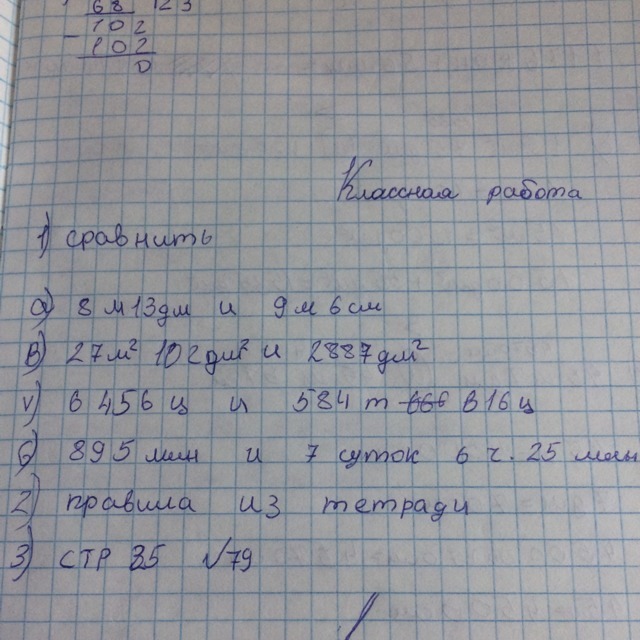 68 123
102
- 102
0
Классная работа
1) сравнить
а) 8 м 13 дм и 9 м 6 см
в) 27 м² 102 дм² и 2887 дм²
v) 6 456 ц и 584 т 816 ц
б) 895 мин и 7 суток 6 ч. 25 мин
2) правила из тетради
3) стр 35 √79